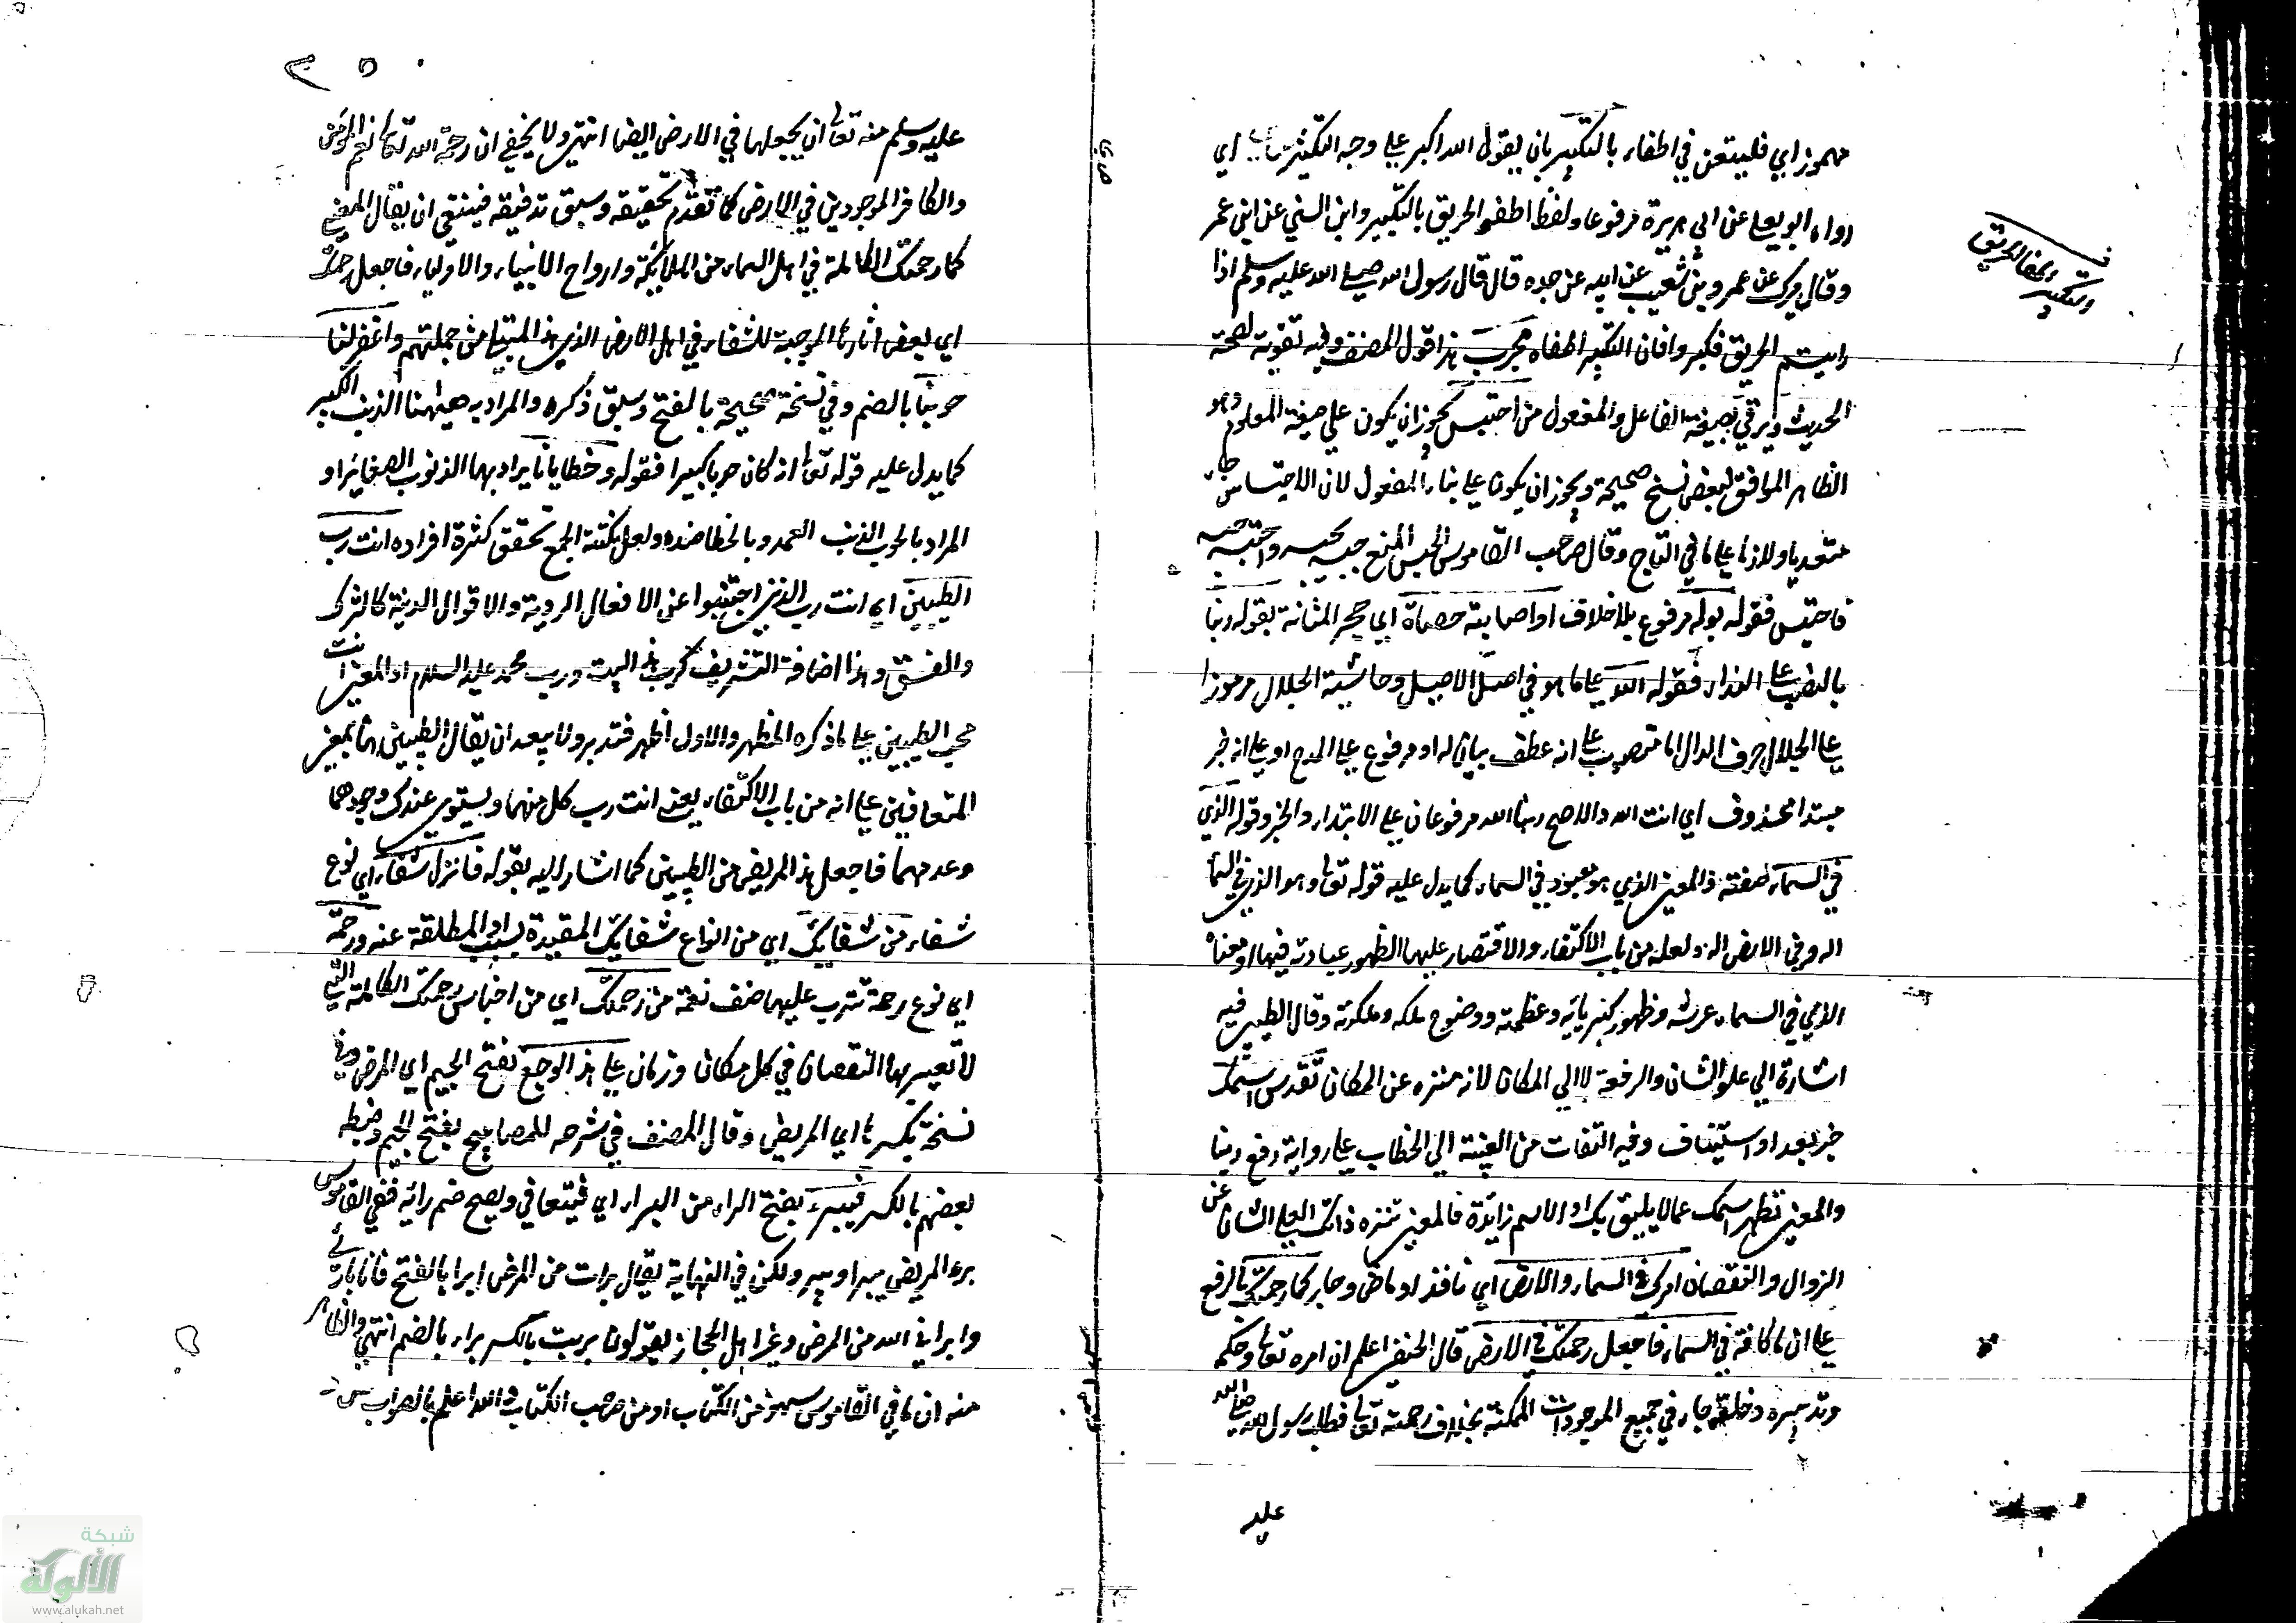 مهموز اي فليستعن في اطفاء بالتكبير بان يقول الله اكبر على وجه التكثير اي
رواه ابو يعلى عن ابي هريرة مرفوعا ولفظ اطفوا الحريق بالتكبير وابن السني عن ابن عمر
وقال ميرك عن عمرو بن شعيب عن ابيه عن جده قال قال رسول الله صلى الله عليه وسلم اذا
رايتم الحريق فكبروا فان التكبير اطفاه مجرب هذا قول المصنف وفيه تقوية لصحة
الحديث ويرقى بصيغة الفاعل والمفعول من احتبس يجوز ان يكون على صيغة المعلوم وهو
الظاهر الموافق لبعض نسخ صحيحة ويجوز ان يكون على بناء المفعول لان الاحتباس جاء
متعديا ولازما على ما في التاج وقال صاحب القاموس الحبس المنع حبسه يحبسه واحتبسه
فاحتبس فقوله بوله مرفوع بلا خلاف او اصابته حصاة اي حجر المثانة بقوله ربنا
بالنصب على النداء فقوله الله على ما هو في اصل الاصيل وحاشية الجلال مرموزا
على الجلال حرف الدال اما منصوب على انه عطف بيان له او مرفوع على المدح او على انه خبر
مبتدا محذوف اي انت الله والاصح ربنا الله مرفوعان على الابتداء والخبر وقوله الذي
في السماء صفته فالمعنى الذي هو معبود في السماء كما يدل عليه قوله تعالى وهو الذي في السماء
اله وفي الارض اله ولعله من باب الاكتفاء والاقتصار عليها لظهور عبادته فيها او معناه
الذي في السماء عرشه وظهور كبريائه وعظمته ووضوح ملكه وملكوته وقال الطيبي فيه
اشارة الي علو الشان والرفعة لا الي المكان لانه منزه عن المكان تقدس اسمك
خبر بعد او استيناف وفيه التفات من الغيبة الي الخطاب على رواية رفع ربنا
والمعنى تطهر اسمك عما لا يليق بك او الاسم زايدة فالمعنى تنزه ذاتك العلي الشان عن
الزوال والنقصان امرك في السماء والارض اي نافذ او ماض وجار كما رحمتك بالرفع
على ان ما كافة في السماء فاجعل رحمتك في الارض قال الحنفي اعلم ان امره تعالى وحكمه
وتدبيره وخلقه جار في جميع الموجودات الممكنة بخلاف رحمته تعالى فطلب رسول الله صلى الله
عليه
والتكبير يطفا الحريق
عليه وسلم منه تعالى ان يجعلها في الارض ايضا انتهى ولا يخفى ان رحمة الله تعالى تعم المؤمن
والكافر الموجودين في الارض كما تقدم تحقيقه وسبق تدقيقه فينبغي ان يقال المعنى
كما رحمتك الكاملة في اهل السماء من الملائكة وارواح الانبياء والاولياء فاجعل رحمتك
اي بعض اثارها الموجبة للشفاء في اهل الارض الذي هذا المبتلي من جملتهم واغفر لنا
حوبنا بالضم وفي نسخة صحيحة بالفتح وسبق ذكره والمراد به ههنا الذنب الكبير
كما يدل عليه قوله تعالى انه كان حوبا كبيرا فقوله وخطايانا يراد بها الذنوب الصغائر او
المراد بالحوب الذنب العمد وبالخطا ضده ولعل نكتة الجمع تحقق كثرة افراده انت رب
الطيبين اي انت رب الذين اجتنبوا عن الافعال الردية والاقوال الدنية كالشرك
والفسق وهذا اضافة التشريف كرب هذا البيت ورب محمد عليه السلام او المعنى انت
محب الطيبين على ما ذكره المظهر والاول اظهر فتدبر ولا يبعد ان يقال الطيبين هنا بمعنى
المتعافين على انه من باب الاكتفاء يعني انت رب كل منهما ويستوي عندك وجودهما
وعدمهما فاجعل هذا المريض من الطيبين كما اشار اليه بقوله فانزل شفاء اي نوع
شفاء من شفايك اي من انواع شفايك المقيدة بسبب او المطلقة عنه ورحمة
اي نوع رحمة تترتب عليها صنف نعمة من رحمتك اي من اجناس رحمتك الكاملة التي
لا تعيير بها النقصان في كل مكان وزمان على هذا الوجع بفتح الجيم اي المرض وفي
نسخة بكسرها اي المريض وقال المصنف في شرحه للمصابيح بفتح الجيم وضبطه
بعضهم بالكسر فيبرء بفتح الراء من البراء اي فيتعافي ويصح ضم رائه ففي القاموس
برء المريض يبرا ويبرو لكن في النهاية يقال برات من المرض ابرا بالفتح فانا بارئ
وابراني الله من المرض وغير اهل الحجاز يقولون بريت بالكسر براء بالضم انتهى والظاهر
منه ان ما في القاموس سهو من الكتاب او من صاحب الكتاب والله اعلم بالصواب
شبكة
الألوكة
www.alukah.net